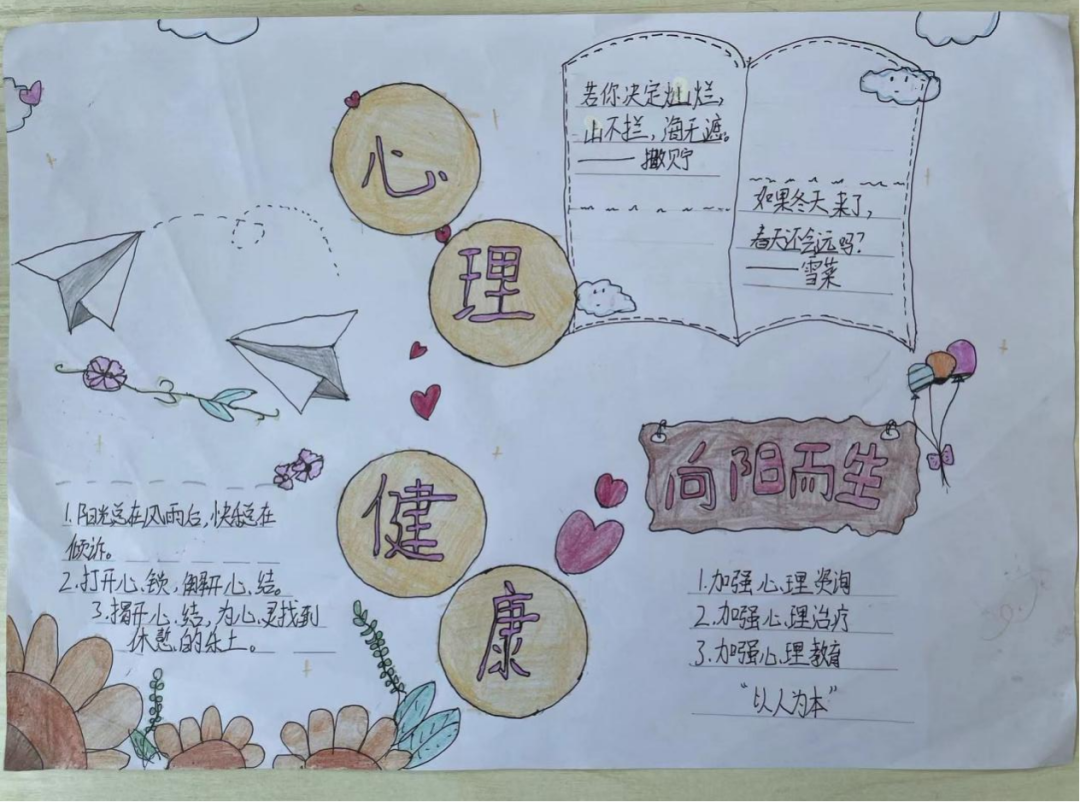 心
理
健
康
若你决定灿烂，
山不拦，海无遮。
——撒贝宁
如果冬天来了，
春天还会远吗？
——雪莱
向阳而生
1.阳光总在风雨后，快乐总在
倾诉。
2.打开心锁，解开心结。
3.揭开心结，为心灵找到
休憩的乐土。
1.加强心理资询
2.加强心理治疗
3.加强心理教育
“以人为本”